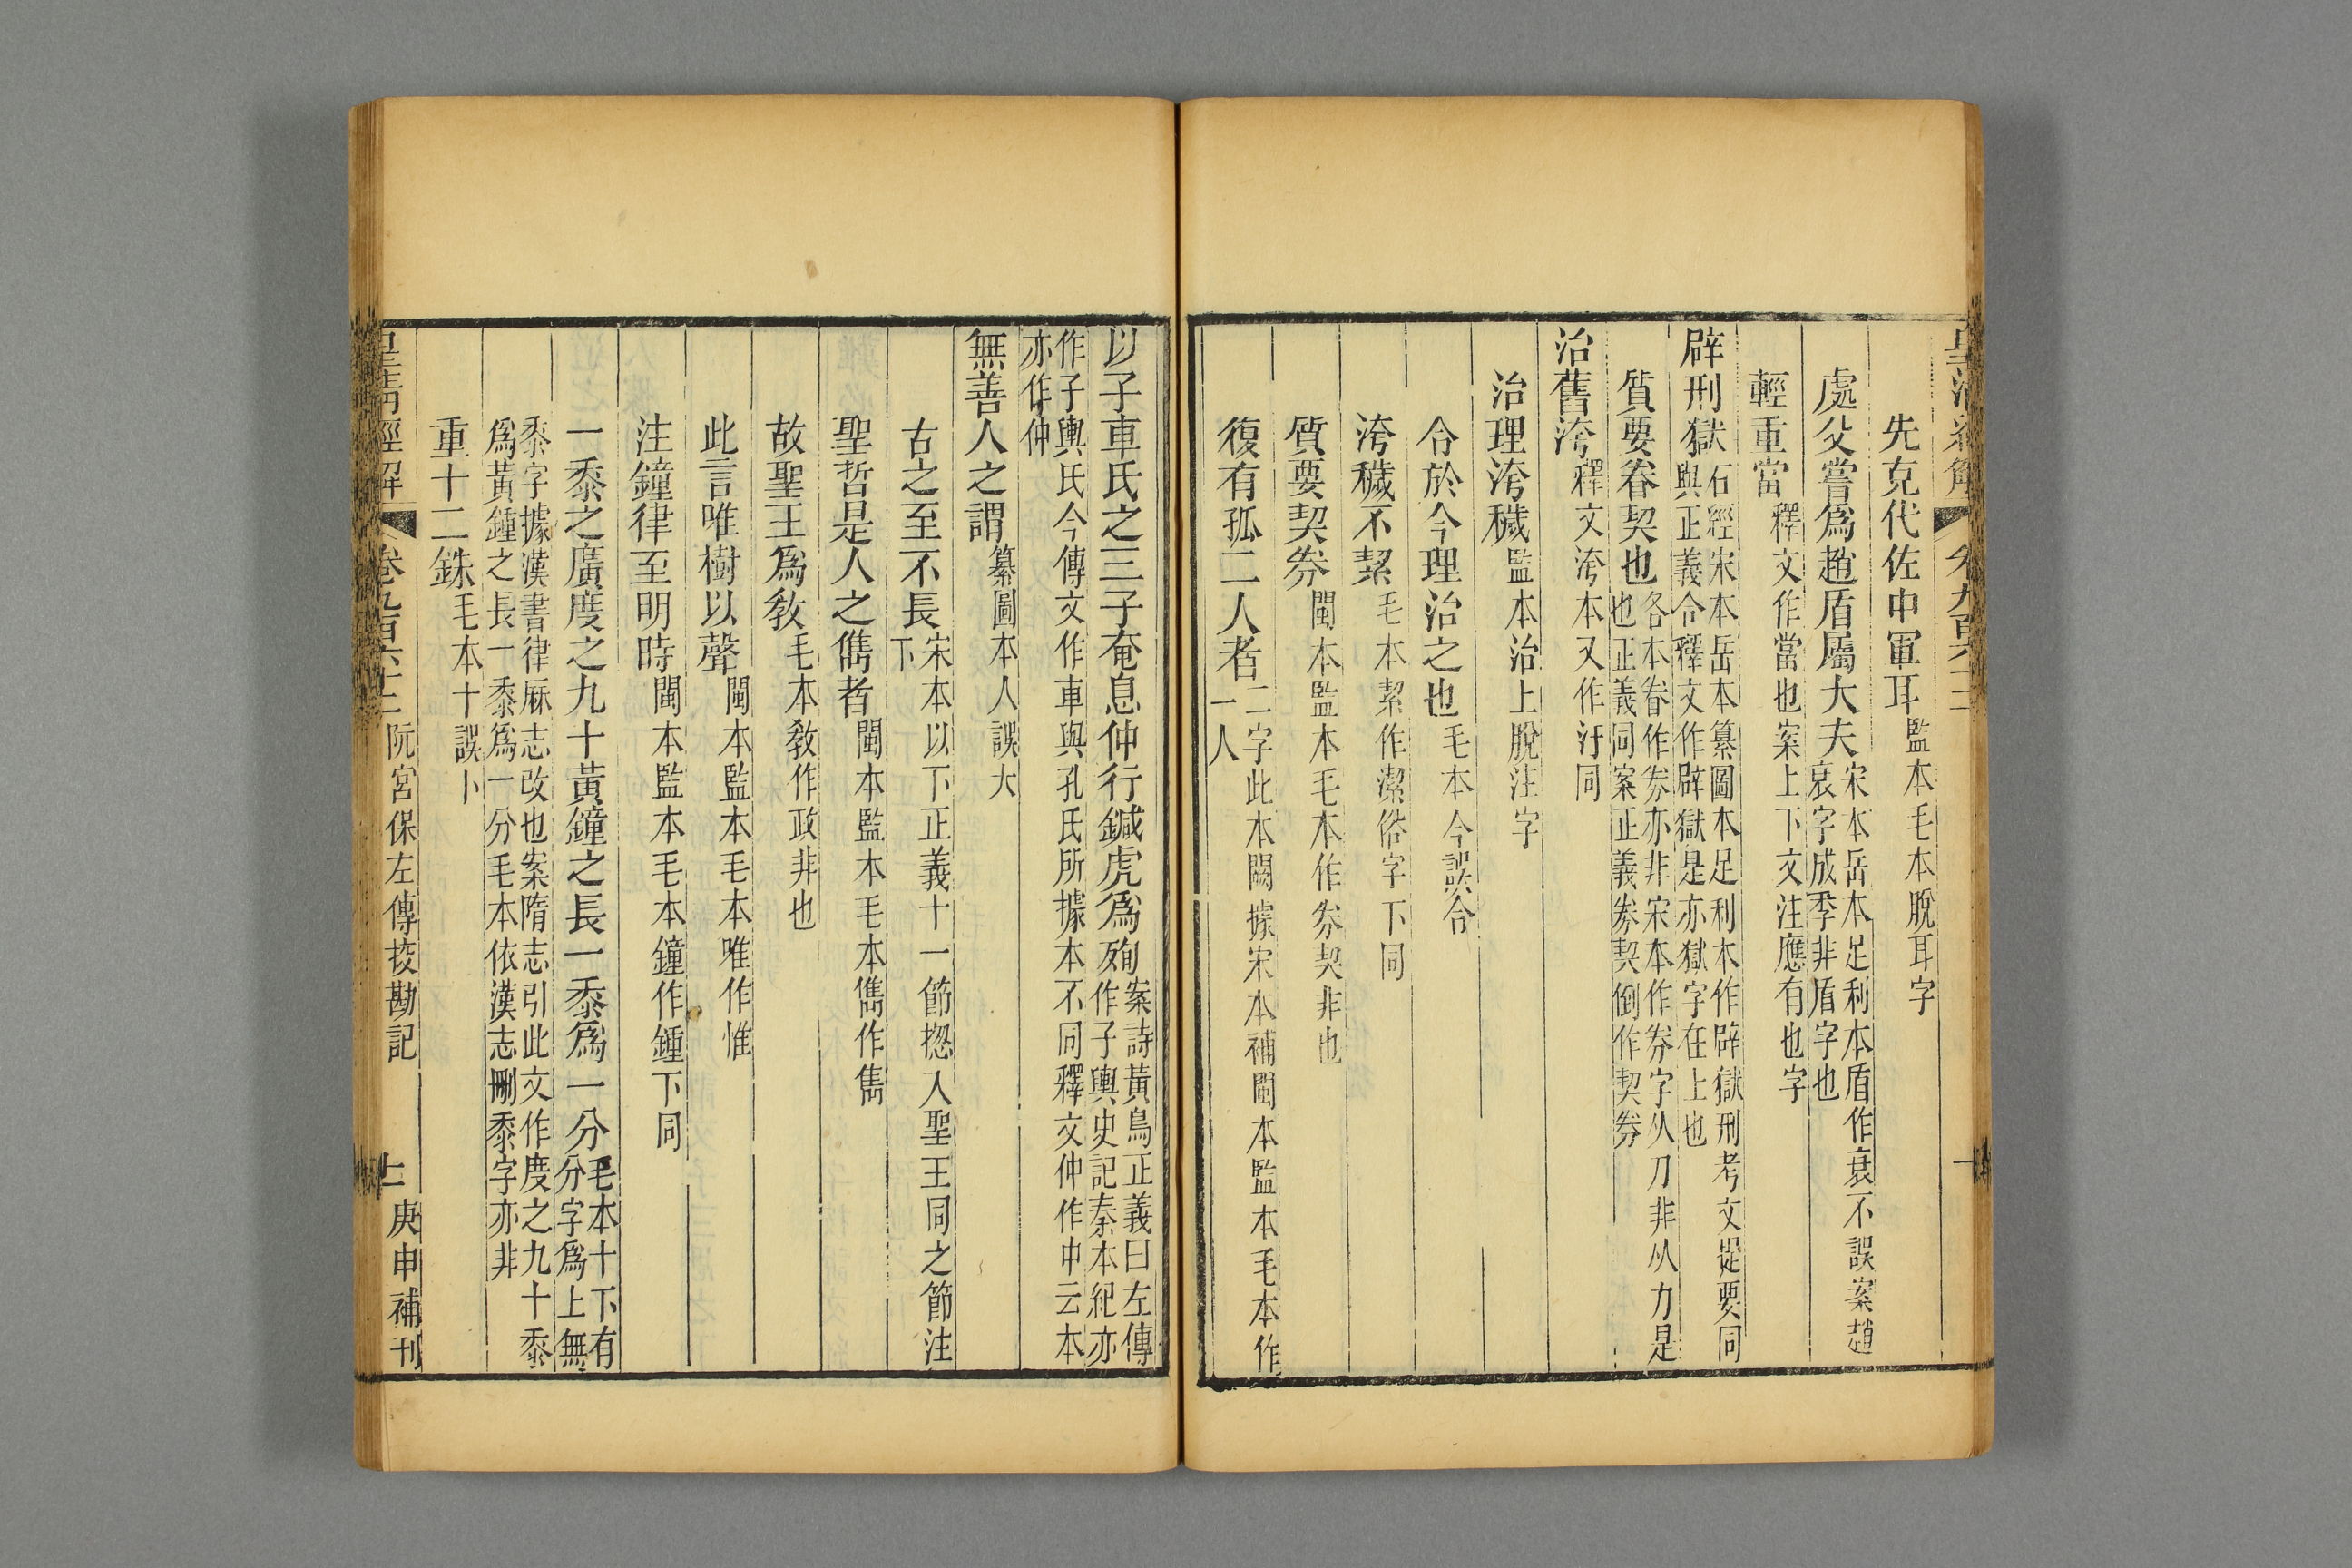 先克代佐中軍耳監本毛本脫耳字
處父嘗爲趙盾屬大夫宋本岳本足利本盾作衰不誤案趙衰字成季非盾字也
輕重當釋文作當也案上下文注應有也字
辟刑獄石經宋本岳本纂圖本足利本作辟獄刑考文提要同與正義合釋文作辟獄是亦獄字在上也
質要眷契也各本眷作券亦非宋本作券字从刀非从力是也正義同案正義券契倒作契券
治舊洿釋文洿本又作汙同
治理洿穢監本治上脫注字
合於今理治之也毛本今誤合
洿穢不絜毛本絜作潔俗字下同
質要契券閩本監本毛本作券契非也
復有孤二人者二字此本闕據宋本補閩本監本毛本作一人
以子車氏之三子奄息仲行鍼虎爲殉案詩黃鳥正義曰左傳作子輿史記秦本紀亦
作子輿氏今傳文作車與孔氏所據本不同釋文仲作中云本亦作仲
無善人之謂纂圖本人誤大
古之至不長宋本以下正義十一節揔入聖王同之節注下
聖哲是人之儁者閩本監本毛本儁作雋
故聖王爲敎毛本敎作政非也
此言唯樹以聲閩本監本毛本唯作惟
注鐘律至明時閩本監本毛本鐘作鍾下同
一黍之廣度之九十黃鐘之長一黍爲一分毛本十下有分字爲上無
黍字據漢書律厤志改也案隋志引此文作度之九十黍爲黃鍾之長一黍爲一分毛本依漢志刪黍字亦非
重十二銖毛本十誤卜
皇淸經解 卷九百六十二 阮宮保左傳挍勘記 十一 庚申補刊